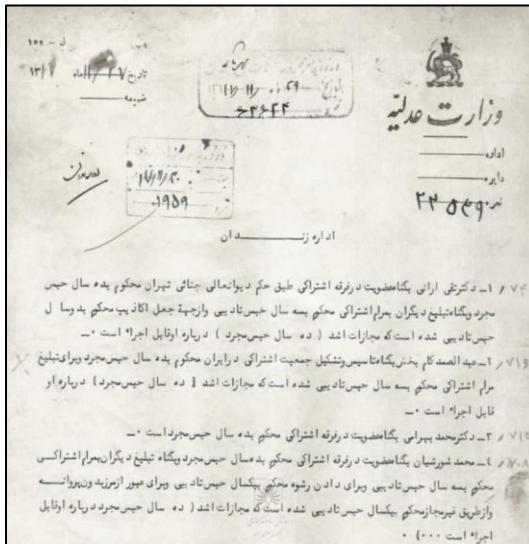 ل - ۱۰۰
تاریخ ۲۷/۱۱ماه ۱۳۱۷
ضمیمه
۲۹
۱۷/۱۱/
۶۳۶۲۴
وزارت عدلیه
اداره
دایره
نمره ۲۲۵۴۹
۱۷/۱۱/۳۰
۱۹۵۹
اداره زنـــدان
۱ــ دکترتقی ارانی بگناه‌عضویت درفرقه اشتراکی طبق حکم دیوانعالی جنائی تهران محکوم بده سال حبس
مجرد وبگناه‌تبلیغ دیگران بمرام‌اشتراکی محکوم بسه سال حبس‌تادیبی وازجهة جعل اکاذیب‌محکوم بدوسال
حبس‌تادیبی شده است‌که مجازات اشد ( ده سال حبس‌مجرد ) درباره اوقابل اجراء است ۰ــ
۲ــ عبدالصمد کام بخش‌بگناه‌تاسیس‌وتشکیل جمعیت اشتراکی درایران محکوم بده سال حبس‌مجرد وبرای‌تبلیغ
مرام اشتراکی محکوم بسه سال حبس‌تادیبی شده است‌که مجازات اشد ( ده سال حبس‌مجرد ) درباره او
قابل اجراء است ۰ــ
۳ــ دکترمحمد بهرامی بگناه‌عضویت درفرقه اشتراکی محکوم بده سال حبس‌مجرد است ۰ــ
۴ــ محمد شورشیان بگناه‌عضویت درفرقه اشتراکی محکوم بده‌سال حبس‌مجرد وبگناه تبلیغ دیگران‌بمرام‌اشتراکــی
محکوم بسه سال حبس‌تادیبی وبرای دادن رشوه محکوم بیکسال حبس‌تادیبی وبرای عبور ازمرزبدون‌پروانـــه
وازطریق غیرمجازمحکوم بیکسال حبس‌تادیبی شده است‌که مجازات‌اشد ( ده سال حبس‌مجرد درباره اوقابل
اجراء است ۰۰۰) ۰